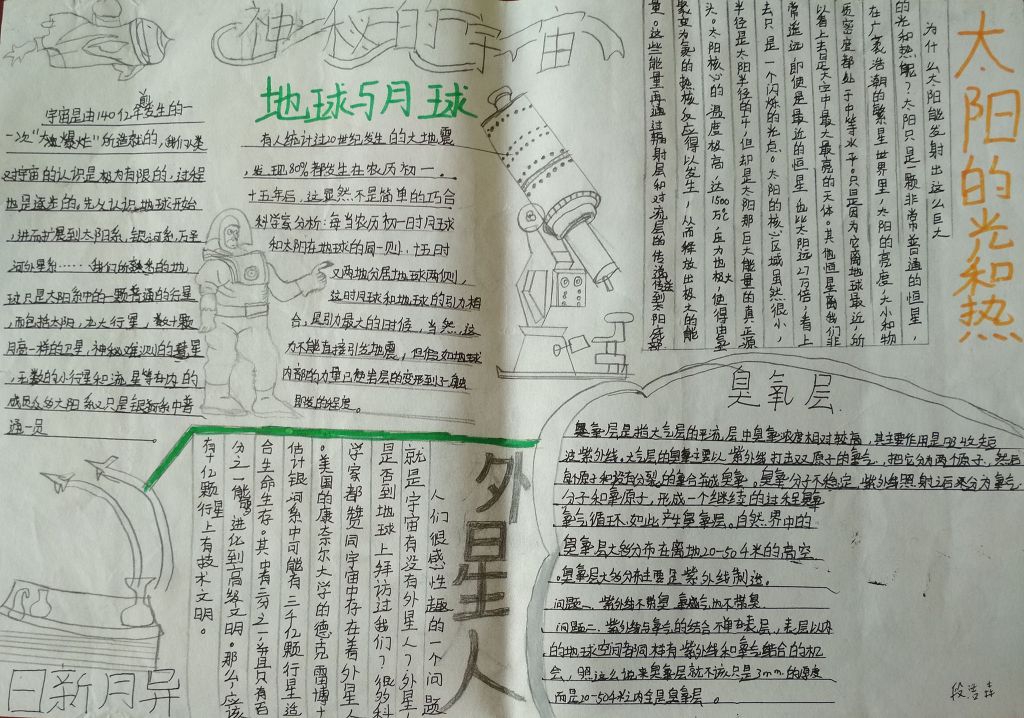 神秘的宇宙
宇宙是由140亿年前发生的一
一次"大爆炸"所造就的,我们人类
对宇宙的认识是极为有限的,过程
也是逐步的。先人认识地球开始
,进而扩展到太阳系,银河系,乃至
河外星系……我们所熟悉的地
球只是太阳系中的一颗普通的行星
,而包括太阳,九大行星,数十颗
月亮一样的卫星,神秘难测的彗星
,无数的小行星和流星等在内的
成员众多太阳系又只是银河系中普
通一员
地球与月球
有人统计过20世纪发生的大地震
,发现80%都发生在农历初一、
十五年后,这显然不是简单的巧合
科学家分析:每当农历初一日月球
和太阳在地球的同一则;十五时
又两地分居地球两侧,
这时月球和地球的引力相
合,是引力最大的时候,当然,这
力不能直接引发地震,但假如地球
内部的力量已使岩层的变形到了一触
即发的程度。
太阳的光和热
为什么太阳能发射出这么巨大
的光和热呢?太阳只是一颗非常普通的恒星,
在广袤浩瀚的繁星世界里,太阳的亮度,大小和物
质密度都处于中等水平。只是因为它离地球最近,所
以看上去是天空中最大最亮的天体。其他恒星离我们非
常遥远,即使是最近的恒星,也比太阳远27万倍,看上
去只是一个闪烁的光点。太阳的核心区域虽然很小,
半径是太阳半径的1/4,但却是太阳那巨大能量的真正源
头。太阳核心的温度极高,达1500万℃,压力也极大,使得由氢
聚变为氦的热核反应得以发生,从而释放出极大的能
量。这些能量再通过辐射层和对流层的传递
外星人
人们很感性趣的一个问题
就是宇宙有没有外星人?外星人
是否到地球上拜访过我们?很多科
学家都赞同宇宙中存在着外星人
。美国的康奈尔大学的德克雷博士
估计银河系中可能有三千亿颗行星适
合生命生存。其中有三分之一并且只有百
分之一能够进化到高级文明。那么应该
有十亿颗行星上有技术文明。
日新月异
臭氧层
臭氧层是指大气层的平流层中臭氧浓度相对较高,其主要作用是吸收短
波紫外线,大气层的臭氧主要以紫外线打击双原子的氧气,把它分为两个原子,然后
每个原子和没有分裂的氧合并成臭氧。臭氧分子不稳定,紫外线照射之后又分为氧气
分子和氧原子,形成一个继续的过程臭氧
氧气循环,如此产生臭氧层。自然界中的
臭氧层大多分布在离地20-50千米的高空
。臭氧层大多分布主要是紫外线制造。
问题一、紫外线不带臭
问题二、紫外线与氧气的结合不单在表层,表层以内
的地球空间各同样有紫外线和氧气结合的机
会,照这么说来臭氧层就不该只是3mm的厚度
而是20-50千米内全是臭氧层。
段浩森